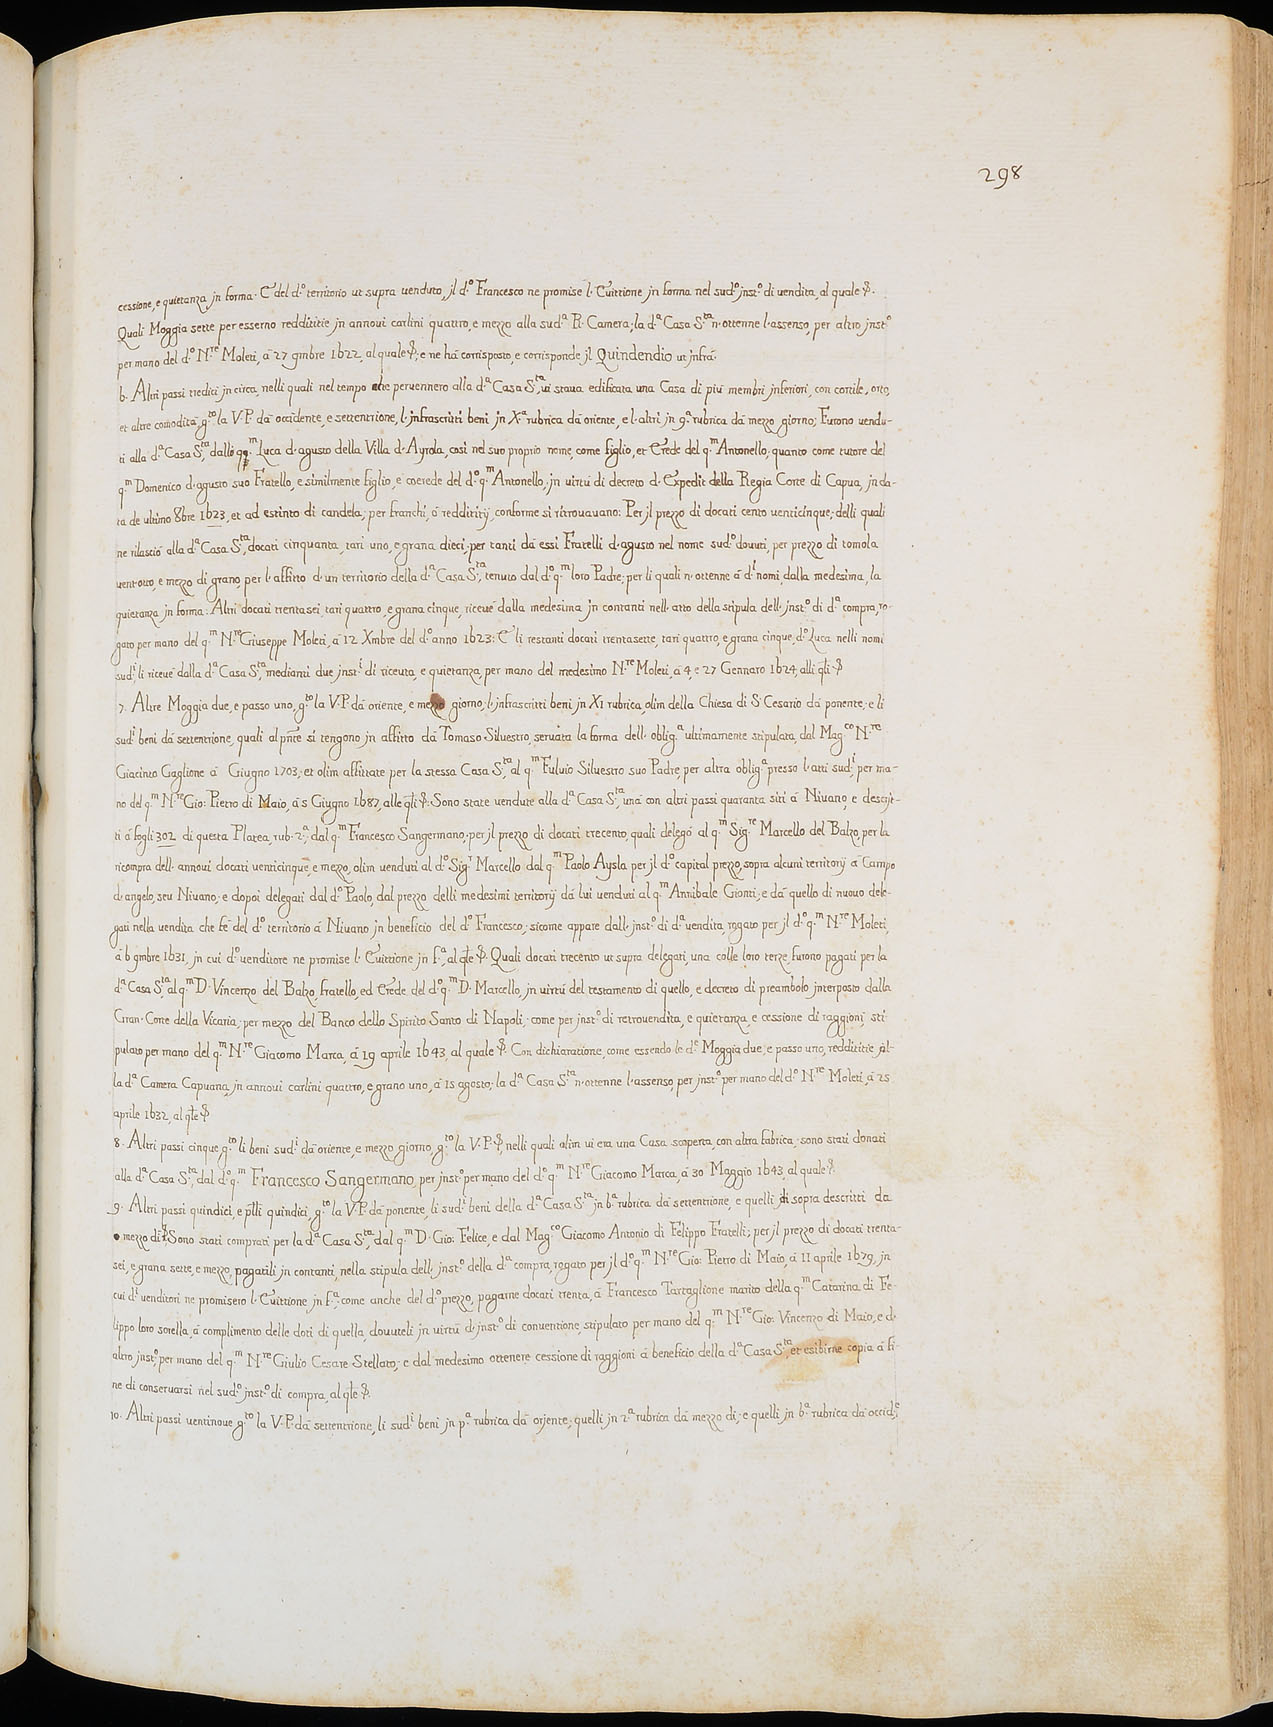 298
cessione, e quietanza jn forma. E del d.º territorio ut supra uenduto, jl d.º Francesco ne promise l. Euittione jn forma nel sud.º jnst.º di uendita, al quale &.
Quali Moggia sette per esserno reddititie jn annoui carlini quattro, e mezzo alla sud.ª R. Camera; la d.ª Casa S.ta n. ottenne l. assenso, per altro jnst.º
per mano del d.º N.re Moleti, á 27 9mbre 1622, al quale &; e ne há corrisposto, e corrisponde jl Quindendio ut jnfrá.
6. Altri passi tredici jn circa, nelli quali nel tempo che peruennero alla d.ª Casa S.ta ui staua edificata una Casa di piú membri jnferiori, con cortile, orto,
et altre comoditá, g.to la V. P. dá occidente, e settentrione, l. jnfrascritti beni jn X.ª rubrica dá oriente, e l. altri jn 9.ª rubrica dá mezzo giorno; Furono uendu-
ti alla d.ª Casa S.ta, dallo qq.m Luca d. agusto della Villa d. Ayrola, cosí nel suo proprio nome, come figlio, et Erede del q.m Antonello, quanto come tutore del
q.m Domenico d. agusto suo Fratello, e similmente figlio, e coerede del d.º q.m Antonello, jn uirtú di decreto d. Expedit della Regia Corte di Capua, jn da-
ta de ultimo 8bre 1623, et ad estinto di candela; per franchi, ó redditirij, conforme si ritrouauano: Per jl prezzo di docati cento uenticinque; delli quali
ne rilasció alla d.ª Casa S.ta, docati cinquanta, tarì uno, e grana dieci, per tanti dá essi Fratelli d. agusto nel nome sud.º douuti, per prezzo di tomola
uent. otto, e mezzo di grano, per l. affitto d. un territorio della d.ª Casa S.ta, tenuto dal d.º q.m loro Padre; per li quali n. ottenne á d.i nomi, dalla medesima, la
quietanza jn forma: Altri docati trentasei, tarì quattro, e grana cinque, riceué dalla medesima jn contanti nell. atto della stipula dell. jnst.º di d.ª compra, ro-
gato per mano del q.m N.re Giuseppe Moleti, á 12 Xmbre del d.º anno 1623: E li restanti docati trentasette, tarì quattro, e grana cinque, d.º Luca nelli nomi
sud.i li riceué dalla d.ª Casa S.ta, medianti due jnst.i di riceuta, e quietanza, per mano del medesimo N.re Moleti, á 4, e 27 Gennaro 1624, alli qli &
7. Altre Moggia due, e passo uno, g.to la V. P. dá oriente, e mezzo giorno; l. jnfrascritti beni jn XI rubrica, olim della Chiesa di S. Cesario dá ponente; e li
sud.i beni dá settentrione, quali al pnte si tengono jn affitto dá Tomaso Siluestro, seruata la forma dell. oblig.ª ultimamente stipulata, dal Mag.co N.re
Giacinto Gaglione á Giugno 1703; et olim affittate per la stessa Casa S.ta, al q.m Fuluio Siluestro suo Padre, per altra oblig.ª presso l. atti sud.i, per ma-
no del q.m N.re Gio: Pietro di Maio, á 5 Giugno 1687, alle qli &: Sono state uendute alla d.ª Casa S.ta, uná con altri passi quaranta siti á Niuano, e descrit-
ti á fogli 302 di questa Platea, rub. 2.ª, dal q.m Francesco Sangermano; per jl prezzo di docati trecento, quali delegó al q.m Sig.re Marcello del Balzo, per la
ricompra dell. annoui docati uenticinque, e mezzo, olim uenduti al d.º Sig.r Marcello dal q.m Paolo Aysla per jl d.º capital prezzo, sopra alcuni territorij á Campo
d. angelo, seu Niuano; e dopoi delegati dal d.º Paolo, dal prezzo delli medesimi territorij dá lui uenduti al q.m Annibale Gionti; e dá quello di nuouo dele-
gati nella uendita che fé del d.º territorio á Niuano jn beneficio del d.º Francesco; sicome appare dall. jnst.º di d.ª uendita, rogato per jl d.º q.m N.re Moleti,
á 6 9mbre 1631, jn cui d.º uenditore ne promise l. Euittione jn f.ª, al qle &. Quali docati trecento ut supra delegati, una colle loro terze, furono pagati per la
d.ª Casa S.ta, al q.m D. Vincenzo del Balzo, fratello, ed Erede del d.º q.m D. Marcello, jn uirtú del testamento di quello, e decreto di preambolo jnterposto dalla
Gran. Corte della Vicaria; per mezzo del Banco dello Spirito Santo di Napoli; come per jnst.º di retrouendita, e quietanza, e cessione di raggioni, sti-
pulato per mano del q.m N.re Giacomo Marca, á 19 aprile 1643, al quale &. Con dichiaratione, come essendo le d.e Moggia due, e passo uno, reddititie al-
la d.ª Camera Capuana, jn annoui carlini quattro, e grano uno, á 15 agosto; la d.ª Casa S.ta n. ottenne l. assenso, per jnst.º per mano del d.º N.re Moleti, á 25
aprile 1632, al qle &
8. Altri passi cinque, g.to li beni sud.i dá oriente, e mezzo giorno, g.to la V. P. &, nelli quali olim ui era una Casa scoperta, con altra fabrica; sono stati donati
alla d.ª Casa S.ta, dal d.º q.m Francesco Sangermano, per jnst.º per mano del d.º q.m N.re Giacomo Marca, á 30 Maggio 1643, al quale &.
9. Altri passi quindici, e plli quindici, g.to la V. P. dá ponente, li sud.i beni della d.ª Casa S.ta jn 6.ª rubrica dá settentrione, e quelli di sopra descritti da
mezzo dí: Sono stati comprati per la d.ª Casa S.ta, dal q.m D. Gio: Felice, e dal Mag.co Giacomo Antonio di Felippo Fratelli; per jl prezzo di docati trenta-
sei, e grana sette, e mezzo, pagatili jn contanti, nella stipula dell. jnst.º della d.ª compra, rogato per jl d.º q.m N.re Gio: Pietro di Maio, á 11 aprile 1679, jn
cui d.i uenditori ne promisero l. Euittione, jn f.ª; come anche del d.º prezzo, pagarne docati trenta, á Francesco Tartaglione marito della q.m Catarina di Fe-
lippo loro sorella, á complimento delle doti di quella, douuteli jn uirtú d. jnst.º di conuentione, stipulato per mano del q.m N.re Gio: Vincenzo di Maio, e d.
altro jnst.º, per mano del q.m N.re Giulio Cesare Stellato; e dal medesimo ottenere cessione di raggioni á beneficio della d.ª Casa S.ta, et esibirne copia á fi-
ne di conseruarsi nel sud.º jnst.º di compra, al qle &.
10. Altri passi uentinoue, g.to la V. P. dá settentrione, li sud.i beni jn p.ª rubrica dá orjente; quelli jn 2.ª rubrica dá mezzo dí; e quelli jn 6.ª rubrica dá occid.e